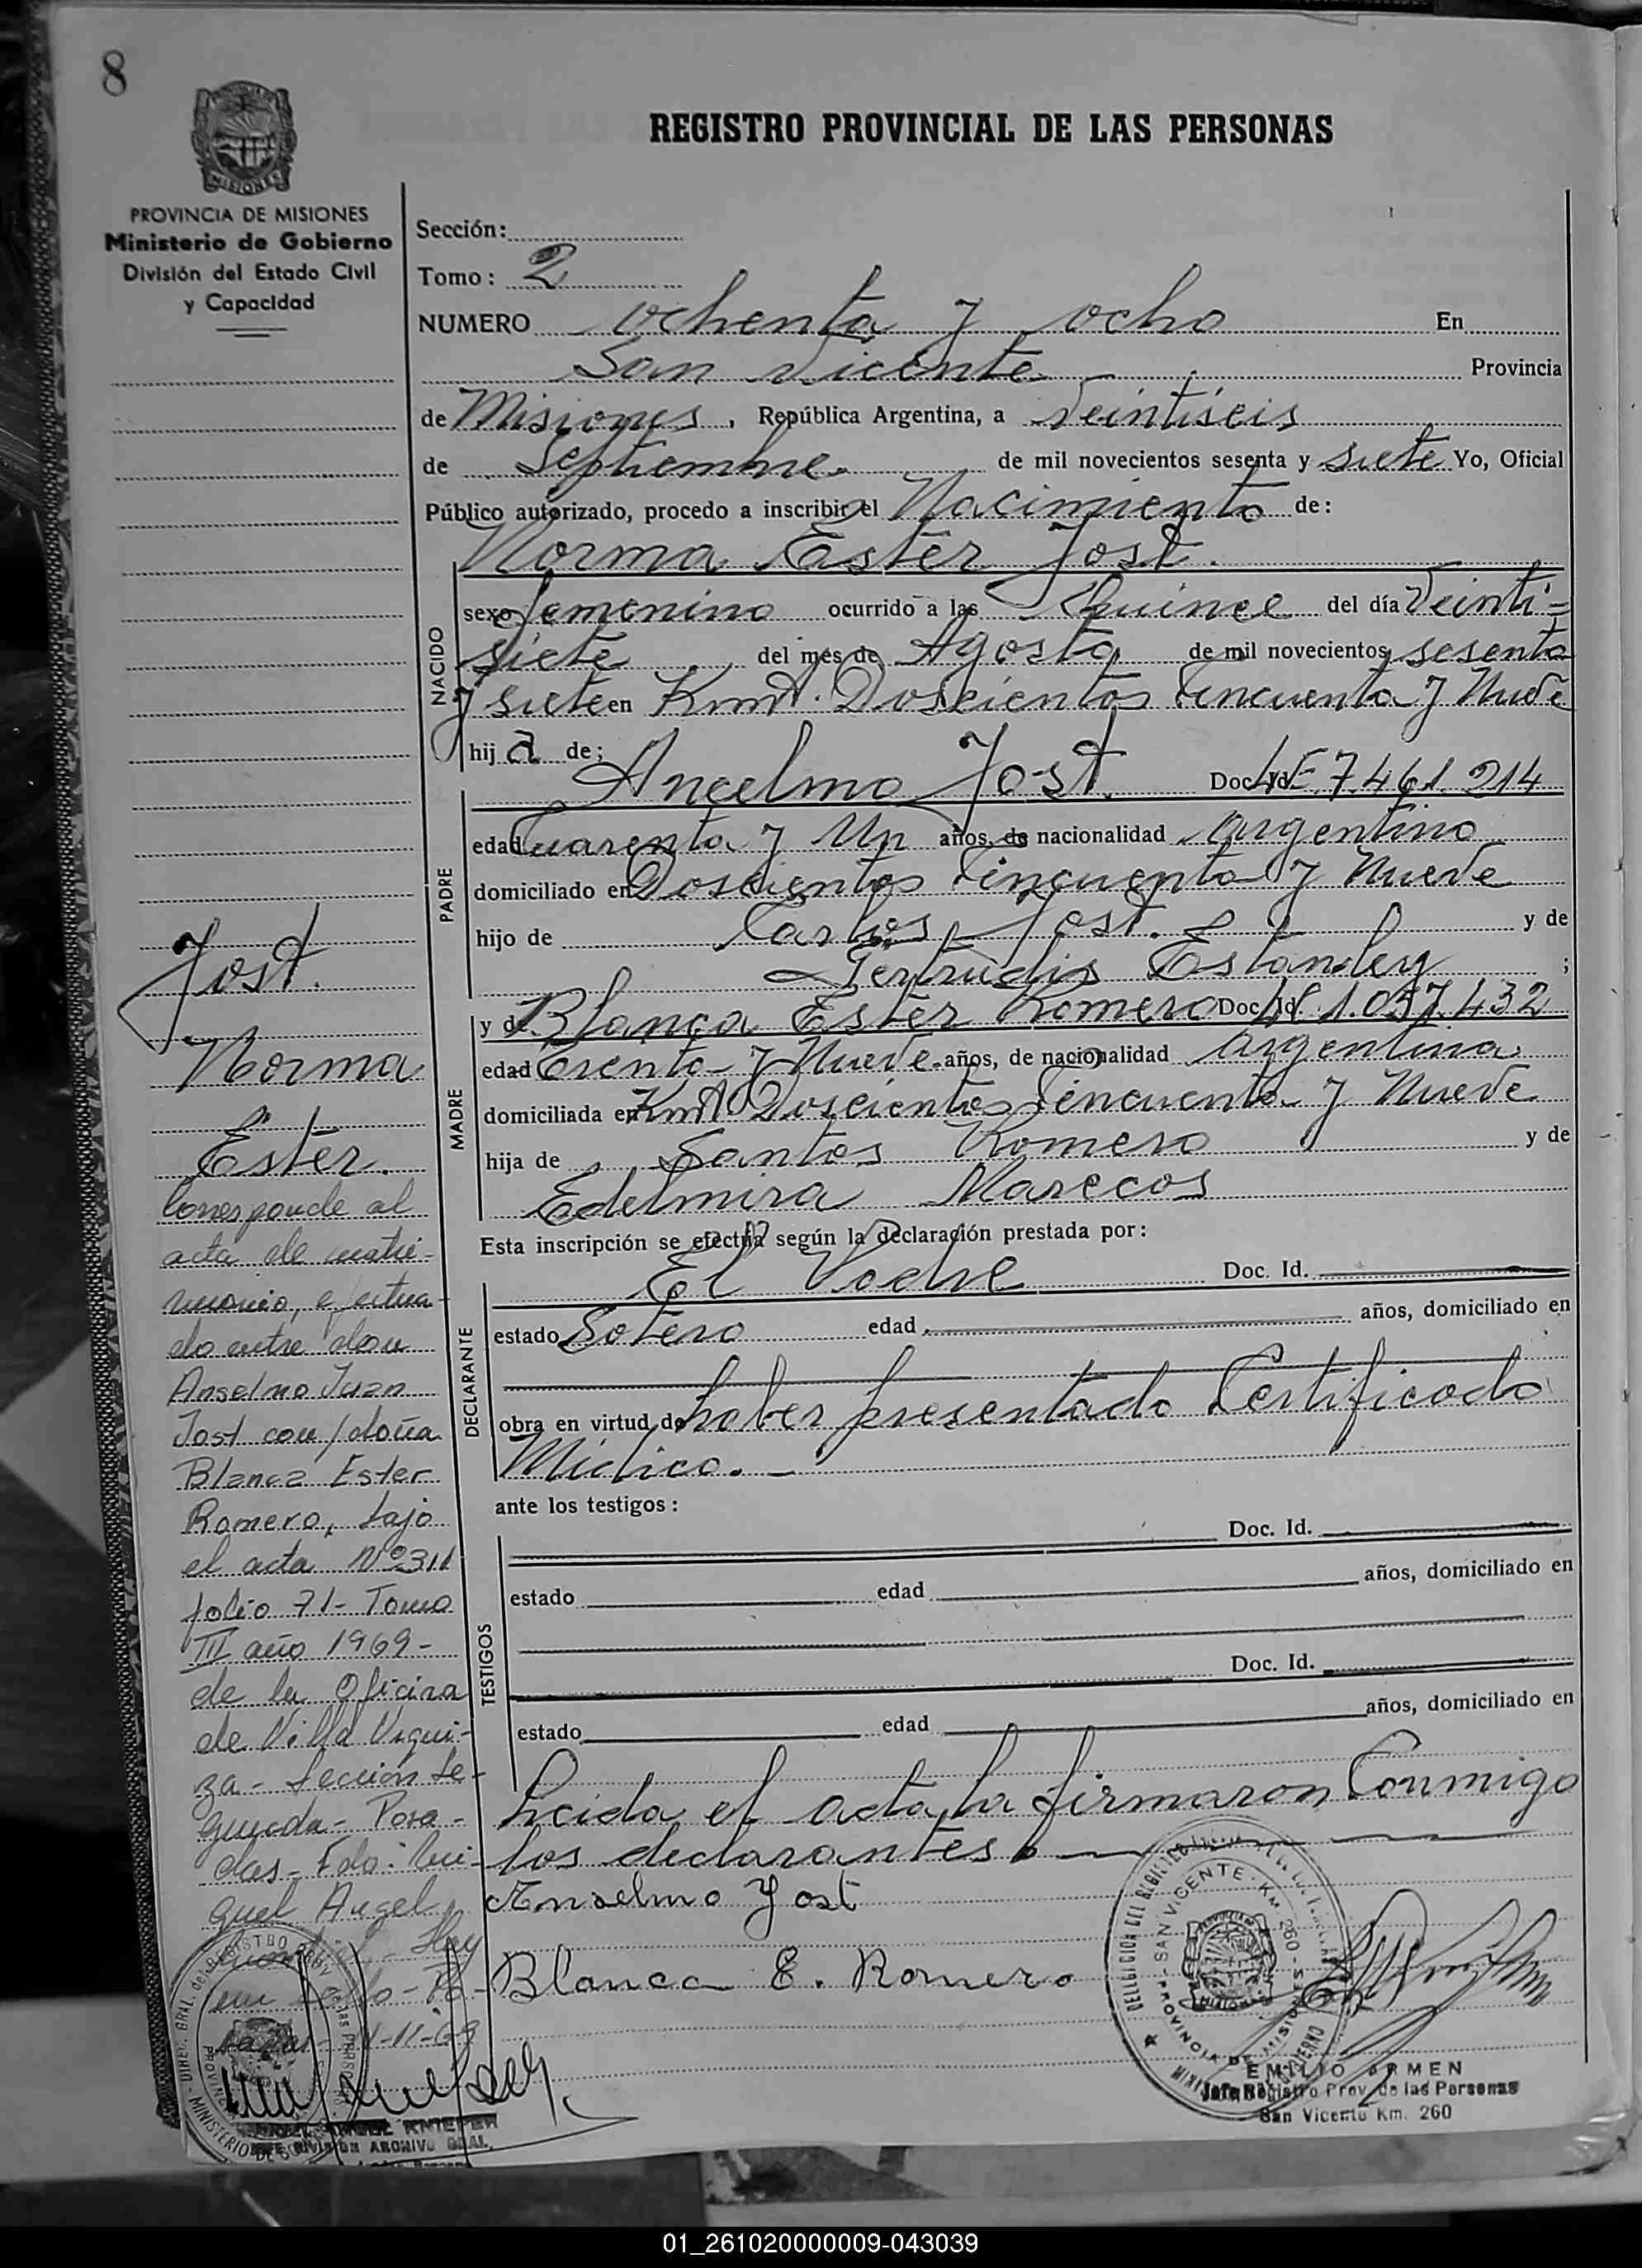 8
PROVINCIA DE MISIONES
Ministerio de Gobierno
División del Estado Civil
y Capacidad
REGISTRO PROVINCIAL DE LAS PERSONAS
Sección:
Tomo: 2
NUMERO ochenta y ocho En
San Vicente Provincia
de Misiones, República Argentina, a Veintiseis
de Septiembre de mil novecientos sesenta y siete Yo, Oficial
Público autorizado, procedo a inscribir el Nacimiento de:
Norma Ester Jost.
NACIDO
sexo femenino ocurrido a las Quince del día Veinti-
siete del mes de Agosto de mil novecientos sesenta
y siete en Kmt. Doscientos Cincuenta y Nueve
hija de;
PADRE
Ancelmo Jost. Doc. Id. LE 7.461.214
edad Cuarenta y Un años, de nacionalidad Argentino
domiciliado en Doscientos Cincuenta y Nueve
hijo de Carlos Jost. y de
Gertrudis Estanley ;
MADRE
y de Blanca Ester Romero Doc. Id. 1.057.432
edad Trenta y Nueve años, de nacionalidad Argentina
domiciliada en Kmt Doscientos Cincuenta y Nueve
hija de Santos Romero y de
Edelmira Marecos
Esta inscripción se efectúa según la declaración prestada por:
DECLARANTE
El Padre Doc. Id.
estado Sotero edad años, domiciliado en
obra en virtud de haber presentado Certificado
Médico.-
ante los testigos:
TESTIGOS
Doc. Id.
estado edad años, domiciliado en
Doc. Id.
estado edad años, domiciliado en
Leida el acta, la firmaron Conmigo
los declarantes.
Anselmo Jost
Blanca E. Romero
EMILIO ARMEN
Jefe Registro Prov. de las Personas
San Vicente Km. 260
Jost.
Norma
Ester.
Corresponde al
acta de matri-
monio, efectua-
do entre don
Anselmo Juan
Jost con doña
Blanca Ester
Romero, bajo
el acta Nº 311
folio 71- Tomo
III año 1969-
de la Oficina
de Villa Urqui-
za- Sección Se-
gunda- Posa-
das- Fdo: Mi-
guel Angel
SAN VICENTE - KM. 260
PROVINCIA DE MISIONES
01_261020000009-043039